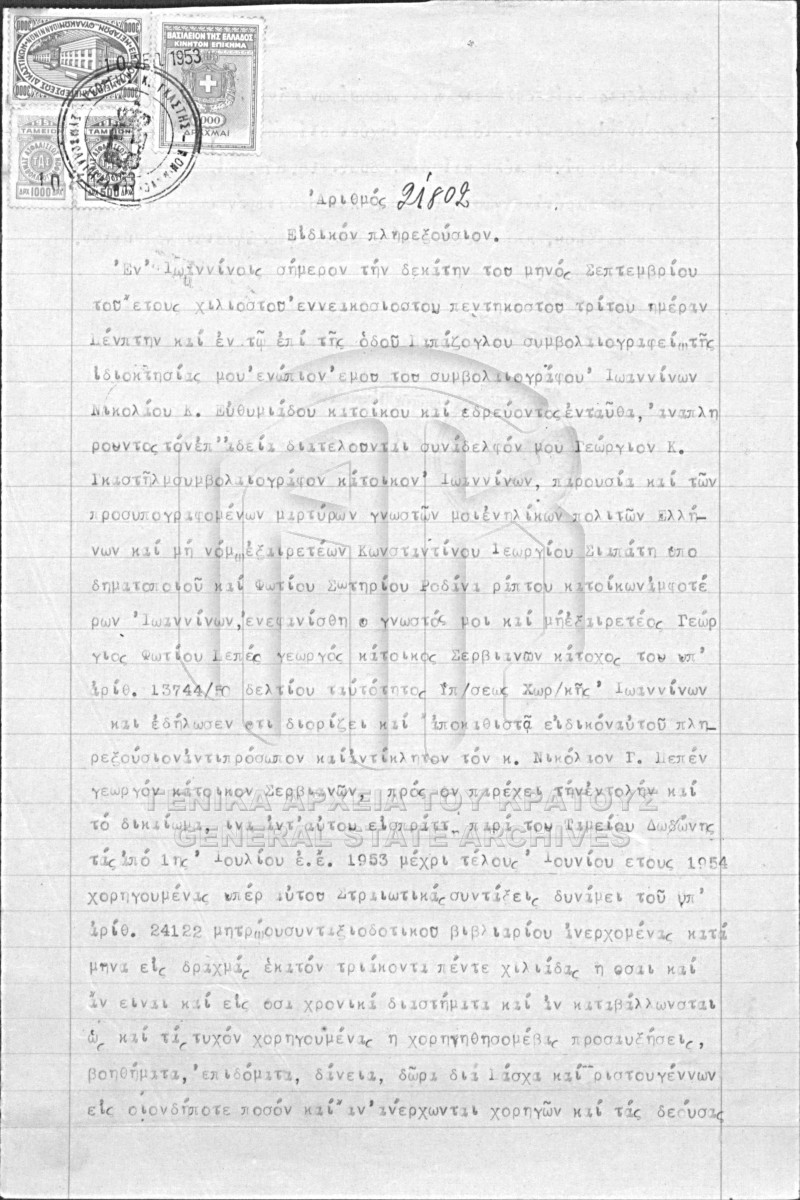 10 ΣΕΠ 1953
ΒΑΣΙΛΕΙΟΝ ΤΗΣ ΕΛΛΑΔΟΣ
ΚΙΝΗΤΟΝ ΕΠΙΣΗΜΑ
ΔΡΑΧΜΑΙ
ΤΑΜΕΙΟΝ ΤΑΜΕΙΟΝ
ΔΡΧ 1000
Ἀριθμός 21802
Εἰδικόν πληρεξούσιον.
Ἐν Ἰωαννίνοις σήμερον τήν δεκάτην του μηνός Σεπτεμβρίου
του ἔτους χιλιοστου ἐννεακοσιοστου πεντηκοστου τρίτου ημέραν
Πέμπτην καί ἐν τῳ ἐπί τῆς ὁδοῦ Μπιζογλου συμβολαιογραφείῳ τῆς
ἰδιοκτησίας μου ἐνώπιον ἐμου του συμβολαιογράφου Ἰωαννίνων
Νικολάου Κ. Εὐθυμιάδου κατοίκου καί ἑδρεύοντος ἐνταῦθα, ἀναπλη
ρουντος τόν ἐπ' ἀδεία διατελουντα συνάδελφόν μου Γεώργιον Κ.
Γκαστῆλμσυμβολαιογράφον κάτοικον Ἰωαννίνων, παρουσία καί τῶν
προσυπογραφομένων μαρτύρων γνωστῶν μοι ἐνηλίκων πολιτῶν Ελλή-
νων καί μή νόμῳ ἐξαιρετέων Κωνσταντίνου Γεωργίου Σιαπάτη υπο
δηματοποιοῦ καί Φωτίου Σωτηρίου Ροδίνα ράπτου κατοίκων ἀμφοτέ
ρων Ἰωαννίνων, ἐνεφανίσθη ο γνωστός μοι καί μή ἐξαιρετέος Γεώρ
γιος Φωτίου Πεπές γεωργός κάτοικος Σερβιανῶν κάτοχος του υπ'
ἀριθ. 13744/50 δελτίου ταὐτότητος Υπ/σεως Χωρ/κῆς Ἰωαννίνων
και ἐδήλωσεν οτι διορίζει καί ἀποκαθιστᾳ εἰδικόν αὐτοῦ πλη-
ρεξούσιον ἀντιπρόσωπον καί ἀντίκλητον τόν κ. Νικόλαον Γ. Πεπέν
γεωργόν κάτοικον Σερβιανῶν, πρός ον παρέχει τήν ἐντολήν καί
τό δικαίωμα, ινα ἀντ' αὐτου εἰσπράττῃ παρά του Ταμείου Δωδώνης
τάς ἀπό 1ης Ἰουλίου ἐ.ἔ. 1953 μέχρι τέλους Ἰουνίου ετους 1954
χορηγουμένας υπέρ αὐτου Στρατιωτικάς συντάξεις δυνάμει τοῦ υπ'
ἀριθ. 24122 μητρῴου συνταξιοδοτικου βιβλιαρίου ἀνερχομένας κατά
μηνα εἰς δραχμάς ἑκατόν τριάκοντα πέντε χιλιάδας η οσαι καί
ἄν ειναι καί εἰς οσα χρονικά διαστήματα καί ἄν καταβάλλωνσται
ὡς καί τάς τυχόν χορηγουμένας η χορηγηθησομέβας προσαυξήσεις,
βοηθήματα, ἐπιδόματα, δάνεια, δῶρα διά Πάσχα καί ριστουγέννων
εἰς οἱονδήποτε ποσόν καί ἄν ἀνέρχωνται χορηγῶν καί τάς δεούσας
ΓΕΝΙΚΑ ΑΡΧΕΙΑ ΤΟΥ ΚΡΑΤΟΥΣ
GENERAL STATE ARCHIVES